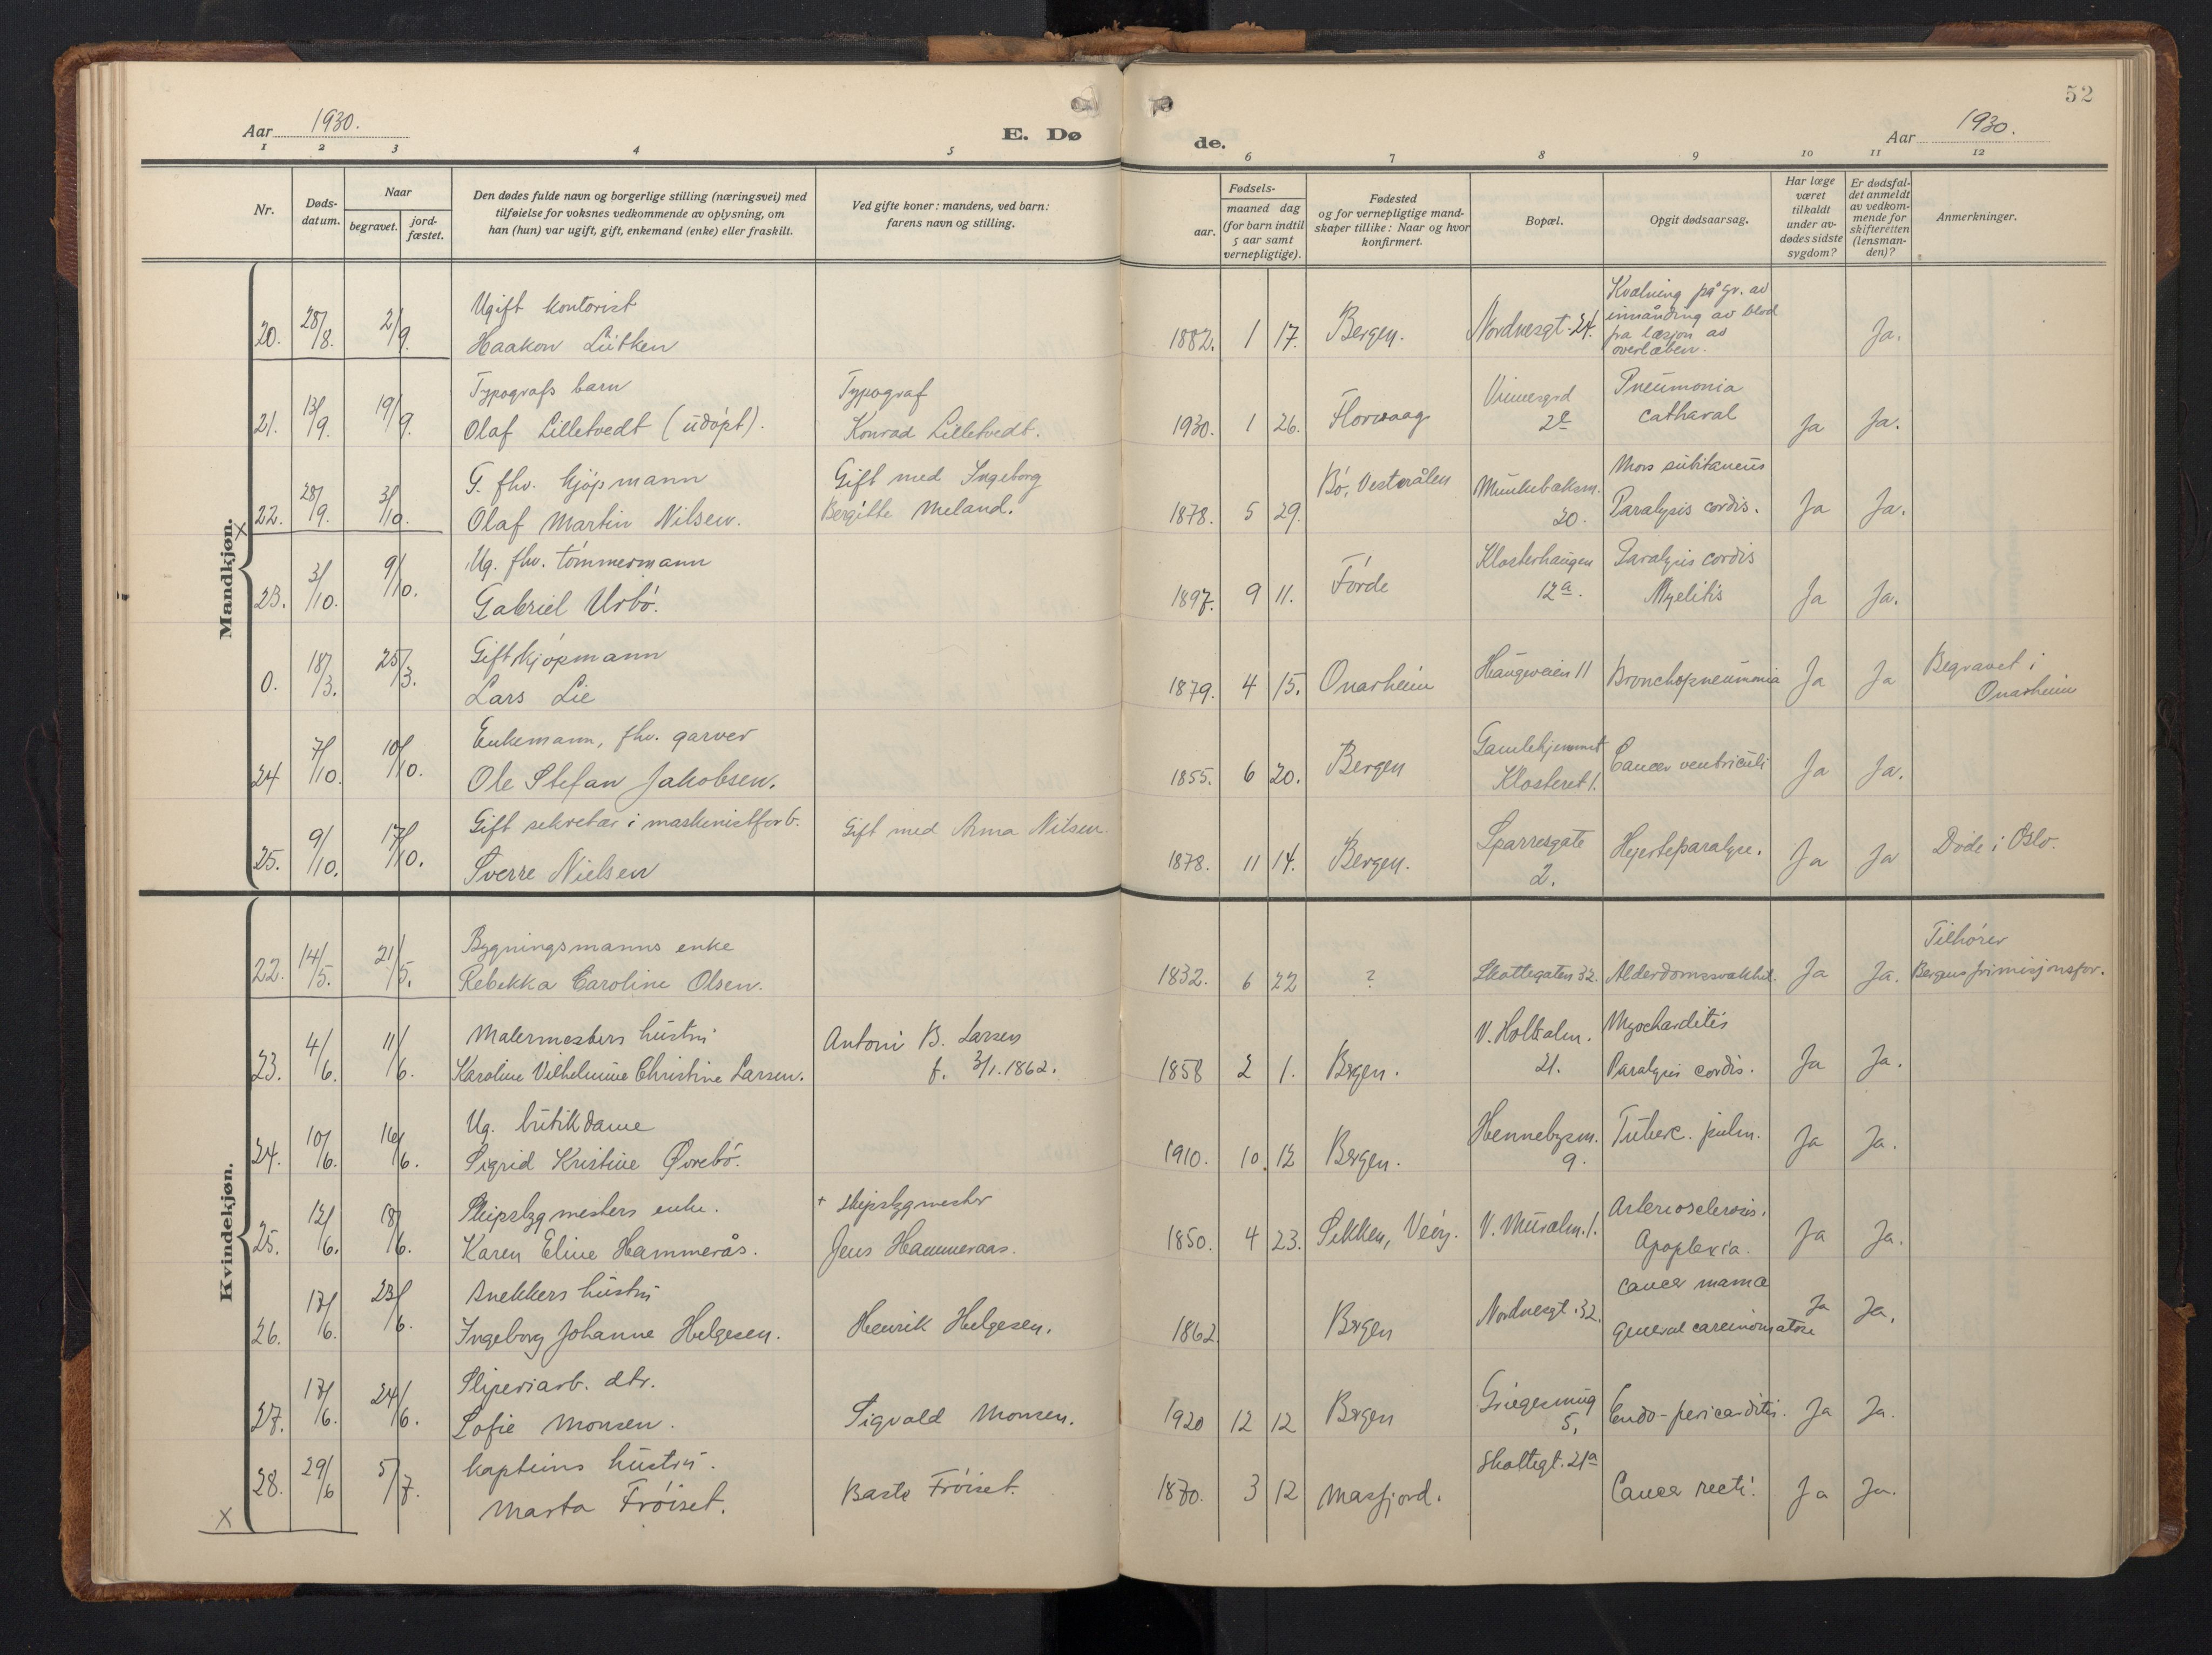 52
Aar 1930.
E. Døde.
Aar 1930.
1 2 3 4 5 6 7 8 9 10 11 12
Nr.
Døds-
datum.
Naar
begravet.
jord-
fæstet.
Den dødes fulde navn og borgerlige stilling (næringsvei) med
tilføielse for voksnes vedkommende av oplysning, om
han (hun) var ugift, gift, enkemand (enke) eller fraskilt.
Ved gifte koner: mandens, ved barn:
farens navn og stilling.
Fødsels-
aar.
maaned dag
(for barn indtil
5 aar samt
vernepligtige).
Fødested
og for vernepligtige mand-
skaper tillike: Naar og hvor
konfirmert.
Bopæl.
Opgit dødsaarsag.
Har læge
været
tilkaldt
under av-
dødes sidste
sygdom?
Er dødsfal-
det anmeldt
av vedkom-
mende for
skifteretten
(lensman-
den)?
Anmerkninger.
Mandkjøn.
20. 28/8. 2/9. Ugift kontorist
Haakon Lütken
1882. 1 17. Bergen. Nordnesgt. 24.
Kvælning på gr. av
innånding av blod
fra læsjon av
overlæben.
Ja.
21. 13/9. 19/9. Typografs barn
Olaf Lilletvedt (udöpt).
Typograf
Konrad Lilletvedt.
1930. 1 26. Florvaag
2
Pneumonia
catharal
Ja Ja.
X 22. 28/9. 3/10. G. fhv. kjöpmann
Olaf Martin Nilsen.
Gift med Ingeborg
Bergitte Meland.
1878. 5 29. Bö, Vesterålen
Munkebæksm.
20.
Mors subitaneus
Paralysis cordis.
Ja Ja.
23. 3/10. 9/10. Ug. fhv. tömmermann
Gabriel Urbö.
1897. 9 11. Förde
Klosterhaugen
12a.
Paralysis cordis
Myelitis
Ja Ja.
0. 18/3. 25/3. Gift kjöpmann
Lars Lie
1879. 4 15. Onarheim Haugeveien 11 Bronchopneumonia Ja Ja
Begravet i
Onarheim
24 7/10. 10/10. Enkemann, fhv. garver
Ole Stefan Jakobsen.
1855. 6 20. Bergen
Gamlehjemmet
Klosteret 1.
Cancer ventriculi
Ja Ja.
25. 9/10. 17/10. Gift sekretær i maskinistforb.
Sverre Nielsen
Gift med Anna Nilsen.
1878. 11 14. Bergen.
Sparresgate
2.
Hjerteparalyse. Ja Ja Döde i Oslo.
Kvindekjøn.
22. 14/5. 21/5. Bygningsmanns enke
Rebekka Caroline Olsen.
1832. 6 22 ? Skottegaten 32. Alderdomssvakhet. Ja Ja.
Tilhörer
Bergens frimisjonsfor.
23. 4/6. 11/6. Malermesters hustru
Karoline Vilhelmine Christine Larsen.
Antoni B. Larsen
f. 3/1. 1862.
1858 2 1. Bergen.
V. Holbalm.
21.
Myocharditis
Paralysis cordis.
Ja Ja.
24. 10/6. 16/6. Ug. butikdame
Sigrid Kristine Øvrebö.
1910. 10. 12 Bergen.
Hennebysm.
9.
Tuberc. pulm. Ja Ja.
25. 12/6. 18/6. Skipsbygmesters enke.
Karen Eline Hammerås.
+ Skipsbygmester
Jens Hammeraas.
1850. 4 23. Sekken, Veöy. V. Muralm. 1.
Arteriosclerosis.
Apoplexia.
Ja Ja.
26. 17/6. 23/6. Snekkers hustru
Ingeborg Johanne Helgesen.
Henrik Helgesen.
1862 Bergen Nordnesgt. 32.
Cancer mamæ
General carcinomatose
Ja Ja.
27. 17/6. 24/6. Sliperiarb. dtr.
Sofie Monsen.
Sigvald Monsen.
1920 12 12 Bergen
Griegesmug
5.
Endo-pericarditis. Ja Ja.
X 28. 29/6 5/7. kapteins hustru.
Marta Fröiset.
Baste Fröiset.
1870. 3 12 Masfjord. Skottegt. 21a Cancer recti. Ja Ja.